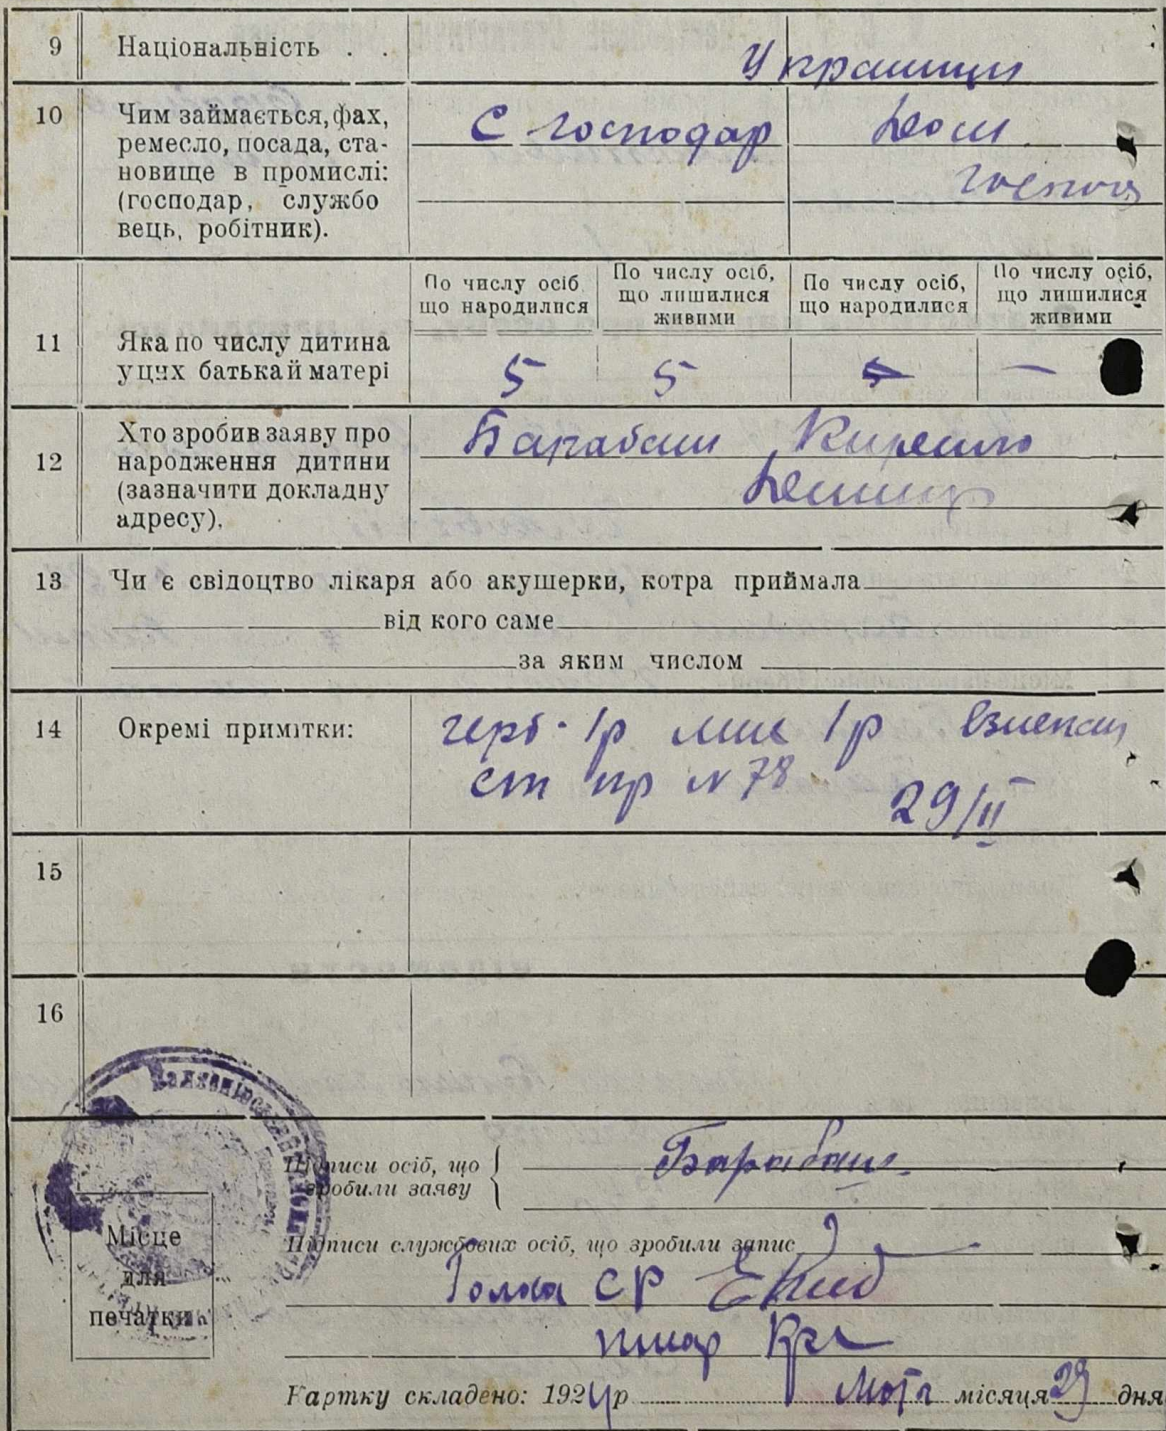 9 Національність . . Украинци
10 Чим займається, фах, ремесло, посада, ста-
новище в промислі:
(господар, службо
вець, робітник).
С господар
Дом
господ
По числу осіб що народилися
По числу осіб, що лишилися живими
По числу осіб, що народилися
По числу осіб, що лишилися живими
11 Яка по числу дитина
у цих батька й матері
5 5 —
12 Хто зробив заяву про
народження дитини
(зазначити докладну
адресу).
Барабаш Кирило
13 Чи є свідоцтво лікаря або акушерки, котра приймала
від кого саме
за яким числом
14 Окремі примітки:
герб. 1р 1р
ст пр N 78
29/II
15
16
Підписи осіб, що
зробили заяву
Барабаш
Місце
для
печатки
Підписи службових осіб, що зробили запис
Голова СР
писар
Картку складено: 1924 р місяця 29 дня